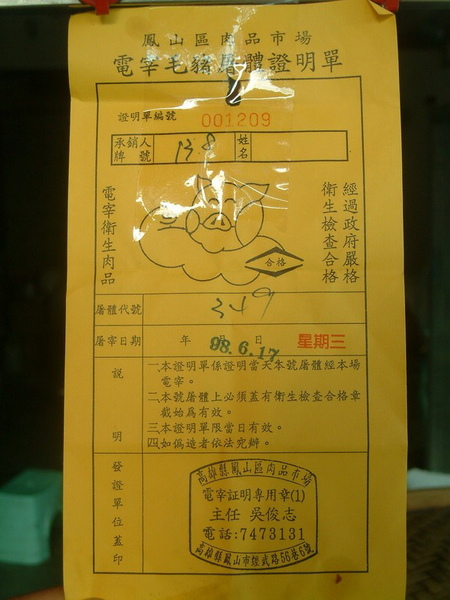 鳳山區肉品市場
電宰毛豬屠體證明單
證明單編號 001209
承銷人牌號 138 姓名
電宰衛生肉品
經過政府嚴格
衛生檢查合格
合格
屠體代號 349
屠宰日期 年 月 日 98.6.17 星期三
說明
一.本證明單係證明當天本號屠體經本場
電宰。
二.本號屠體上必須蓋有衛生檢查合格章
戳始爲有效。
三.本證明單限當日有效。
四.如偽造者依法究辦。
發證單位蓋印
高雄縣鳳山區肉品市場
電宰証明專用章(1)
主任 吳俊志
電話:7473131
高雄縣鳳山市經武路56巷6號